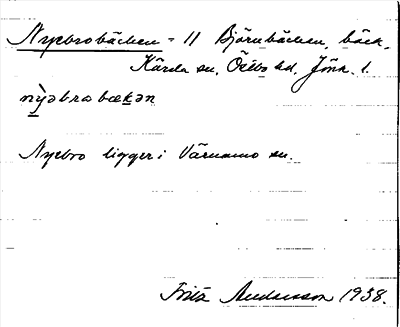 Nyebrobäcken = 11 Björnbäcken, bäck,
Kärda sn, Östbo hd, Jönk. l.
nyəbrabækən
Nyebro ligger i Värnamo sn.
Fritz Andersson 1938.